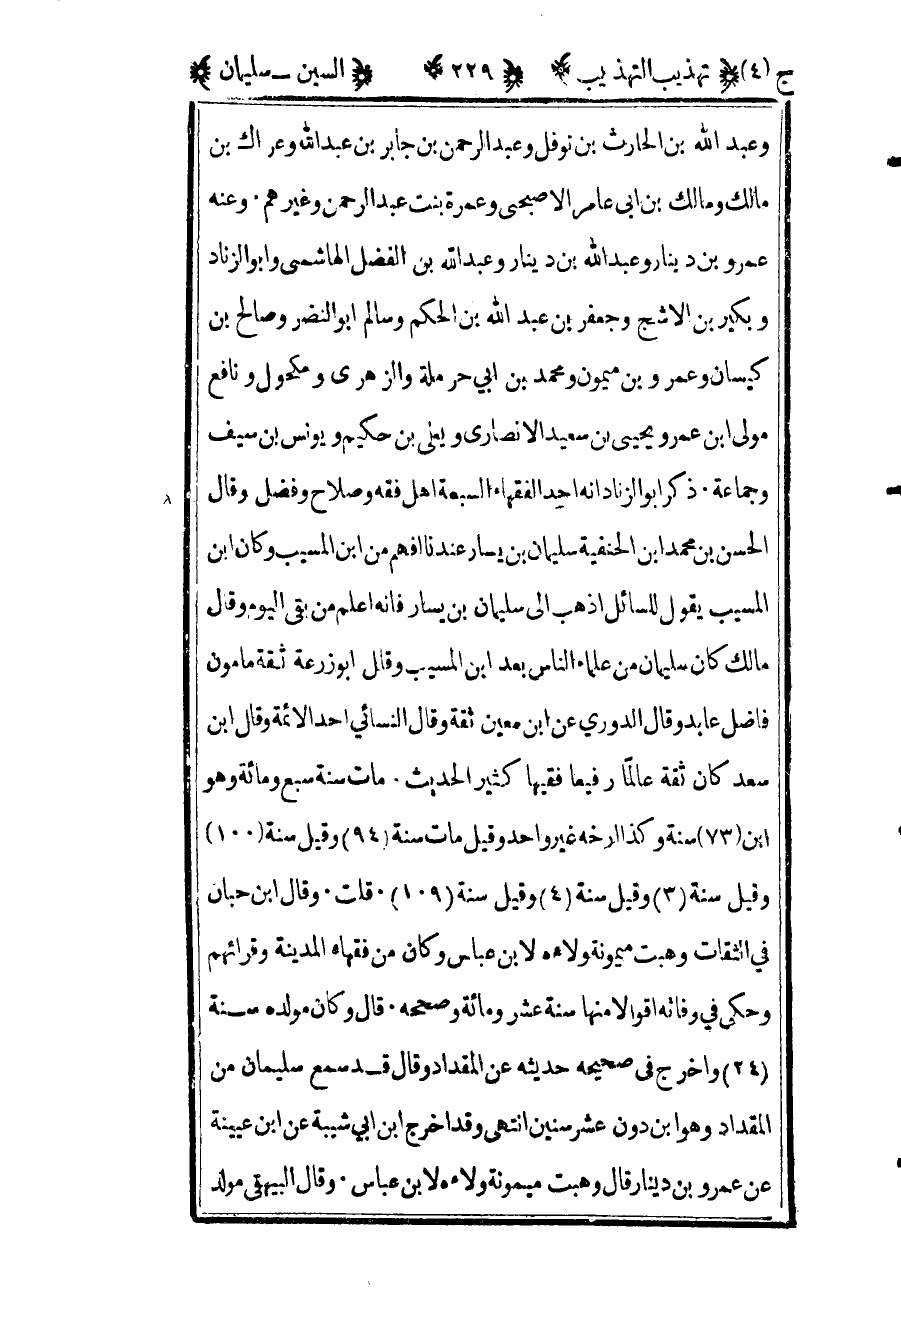 ج (٤) تهذيب التهذيب ٢٢٩ السين ــ سليمان
وعبد الله بن الحارث بن نوفل وعبد الرحمن بن جابر بن عبد الله وعراك بن
مالك ومالك بن ابى عامر الاصبحى وعمرة بنت عبد الرحمن وغيرهم · وعنه
عمرو بن دينار وعبد الله بن دينار وعبد الله بن الفضل الهاشمى وابو الزناد
وبكير بن الاشج وجعفر بن عبد الله بن الحكم وسالم ابو النضر وصالح بن
كيسان وعمرو بن ميمون ومحمد بن ابي حرملة والزهرى ومكحول ونافع
مولى ابن عمر ويحيى بن سعيد الانصارى ويعلى بن حكيم ويونس بن سيف
وجماعة · ذكر ابو الزناد انه احد الفقهاء السبعة اهل فقه وصلاح وفضل وقال
الحسن بن محمد ابن الحنفية سليمان بن يسار عندنا افهم من ابن المسيب وكان ابن
المسيب يقول للسائل اذهب الى سليمان بن يسار فانه اعلم من بقى اليوم وقال
مالك كان سليمان من علماء الناس بعد ابن المسيب وقال ابو زرعة ثقة مامون
فاضل عابد وقال الدوري عن ابن معين ثقة وقال النسائي احد الائمة وقال ابن
سعد كان ثقة عالمًا رفيعا فقيها كثير الحديث · مات سنة سبع ومائة وهو
ابن (٧٣) سنة وكذا ارخه غير واحد وقيل مات سنة (٩٤) وقيل سنة (١٠٠)
وقيل سنة (٣) وقيل سنة (٤) وقيل سنة (١٠٩) · قلت · وقال ابن حبان
في الثقات وهبت ميمونة ولاءه لابن عباس وكان من فقهاء المدينة وقرائهم
وحكى في وفاته اقوالا منها سنة عشر ومائة وصححه · قال وكان مولده سنة
(٢٤) واخرج فى صحيحه حديثه عن المقداد وقال قد سمع سليمان من
المقداد وهو ابن دون عشر سنين انتهى وقد اخرج ابن ابي شيبة عن ابن عيينة
عن عمرو بن دينار قال وهبت ميمونة ولاءه لابن عباس · وقال البيهقى مولد